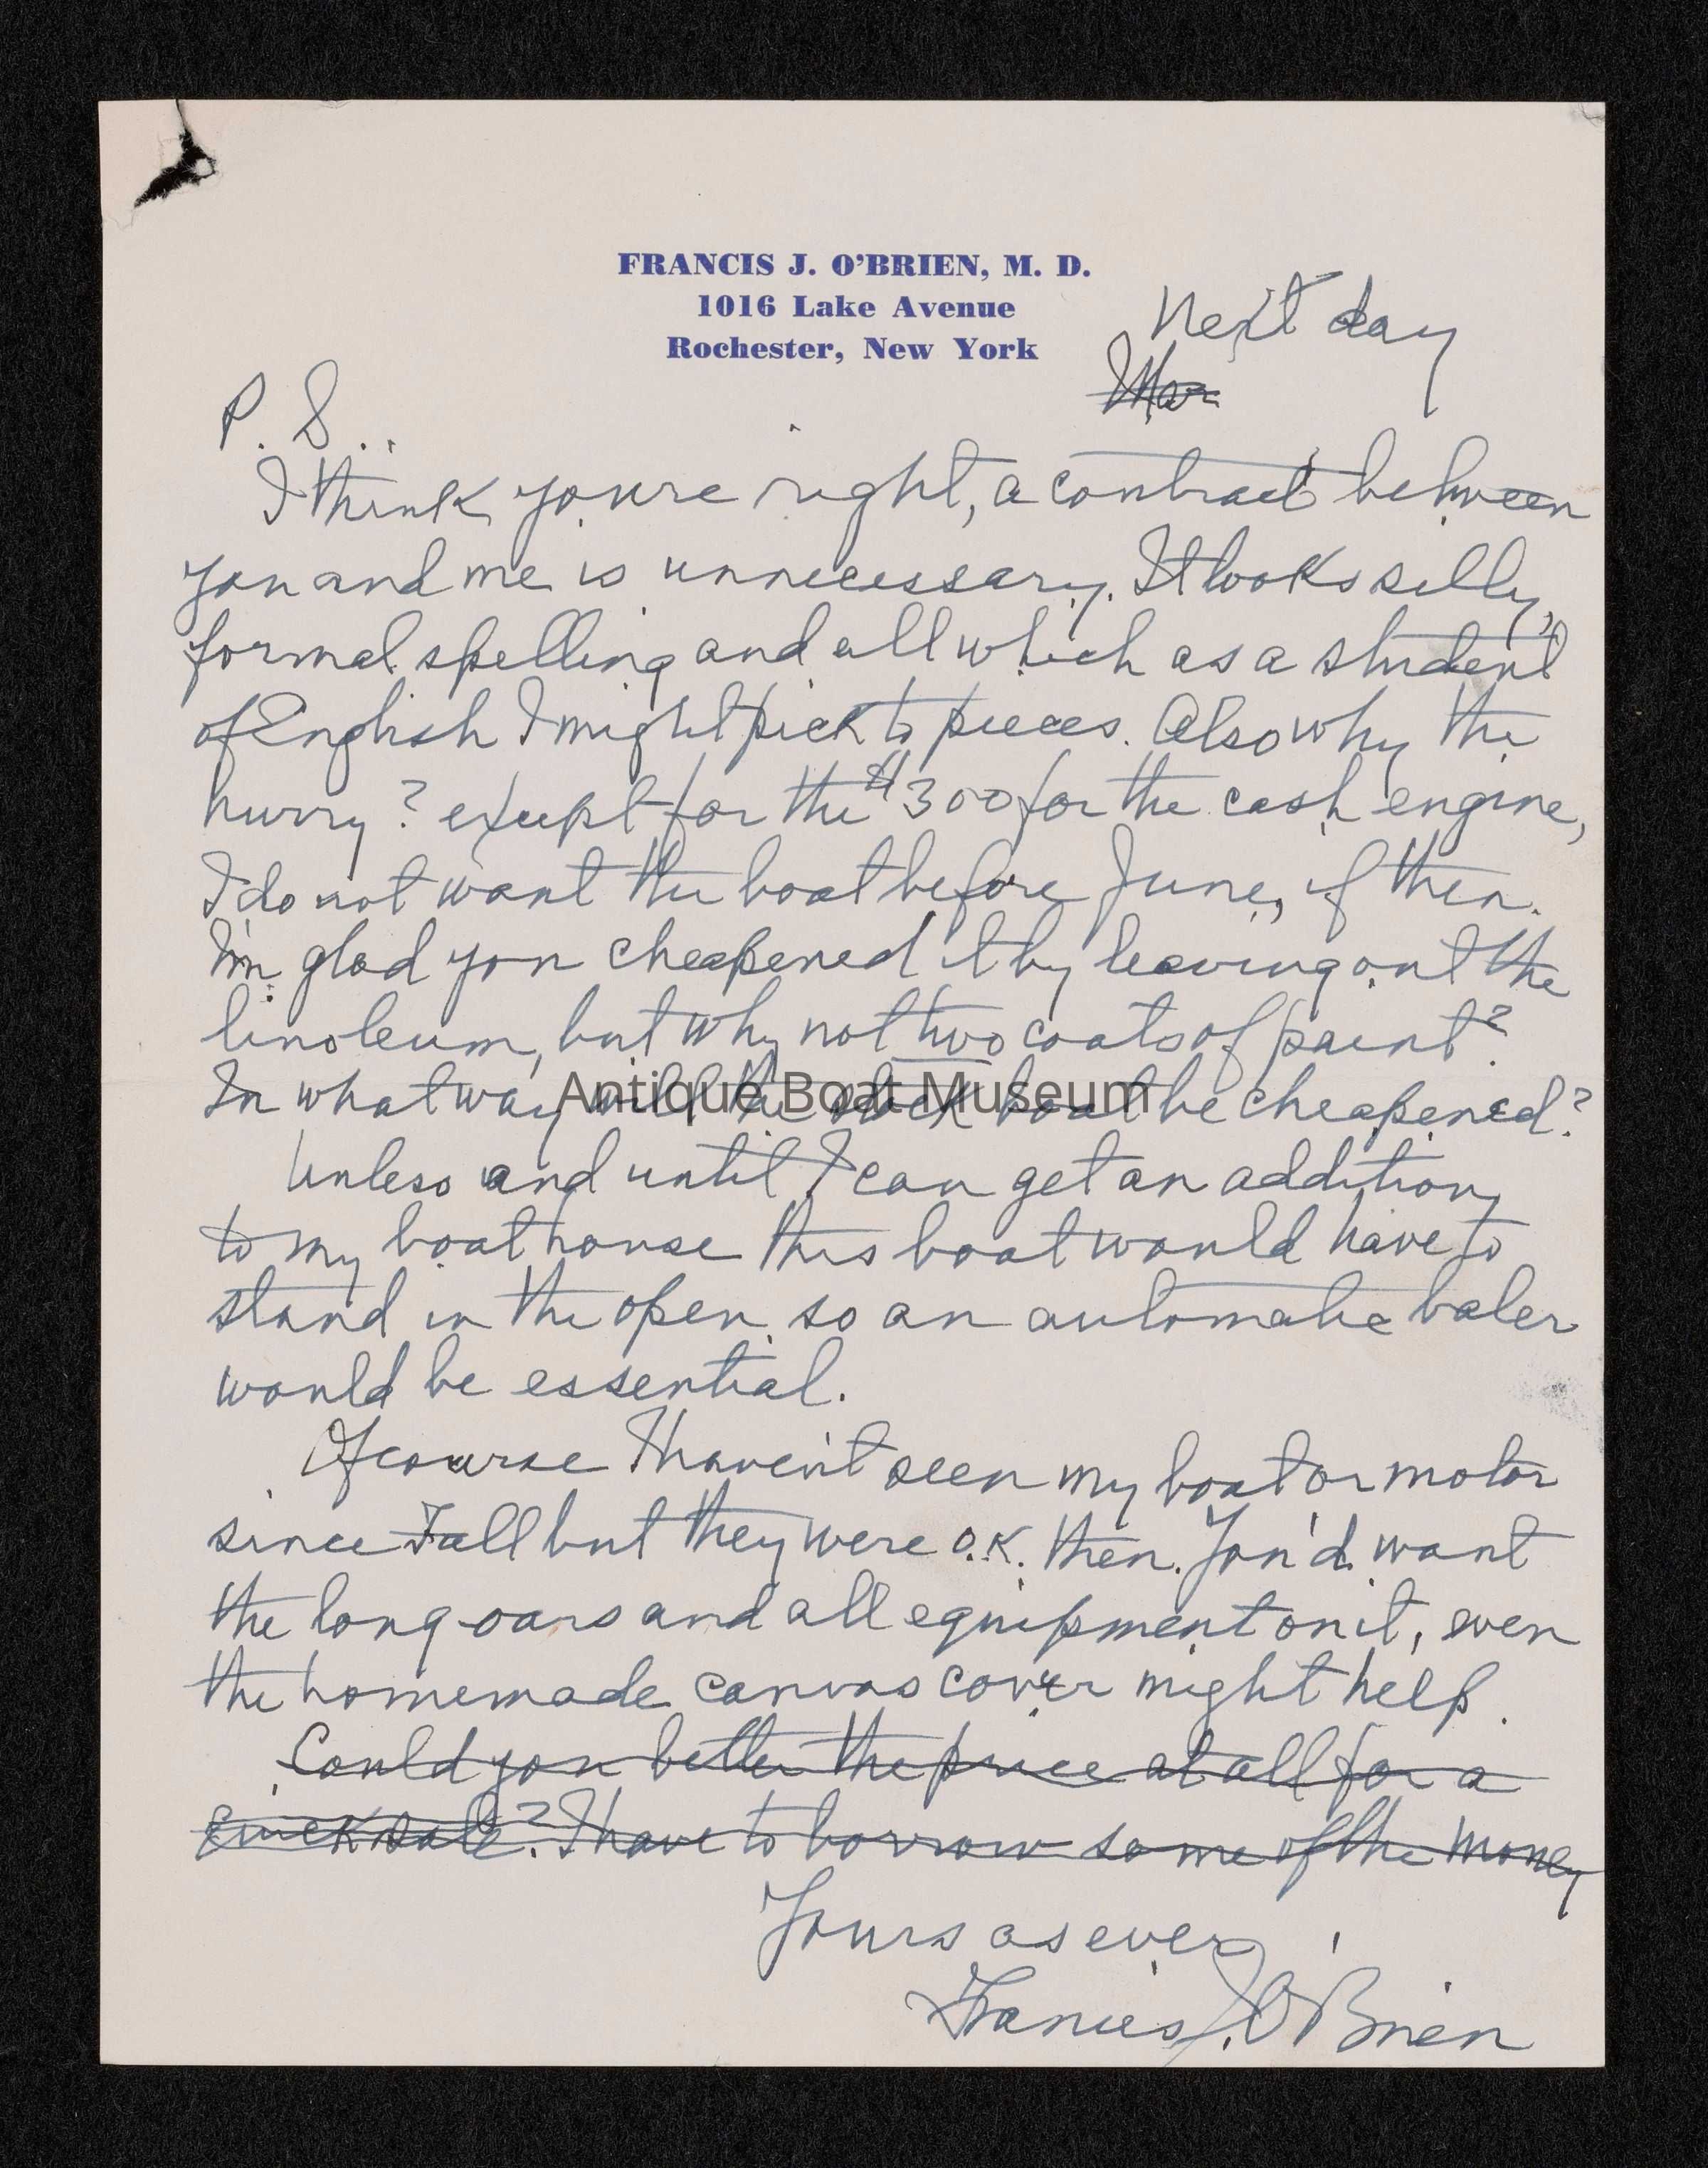 FRANCIS J. O'BRIEN, M. D.
1016 Lake Avenue
Rochester, New York
Next day
Mar
P. S.
I think youre right, a contract between
you and me is unnecessary. It looks silly,
formal spelling and all which as a student
of English I might pick to pieces. Also why the
hurry? except for the $300 for the cash engine,
I do not want the boat before June, if then.
I'm glad you cheapened it by leaving out the
linoleum, but why not two coats of paint?
In what way will the stock boat be cheapened?
Antique Boat Museum
Unless and until I can get an addition
to my boathouse this boat would have to
stand in the open so an automatic baler
would be essential.
Of course I haven't seen my boat or motor
since Fall but they were O.K. then. You'd want
the long oars and all equipment on it, even
the homemade canvas cover might help.
Could you better the price at all for a
quick sale? I have to borrow some of the money
Yours as ever
Francis J. O'Brien